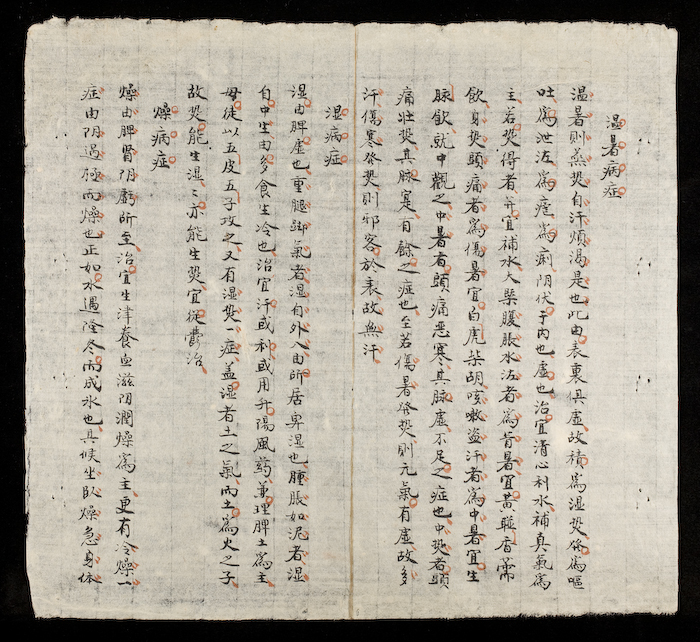 温暑病症
温暑則蒸热自汗煩渴是也此由表裏俱虚故積為湿热發為嘔
吐為泄泻為瘧為痢阴伏于内也虚也治宜清心利水補真氣為
主若热得者并宜補水大槩腹脹水泻者為胃暑宜黄聮香薷
飲身热頭痛者為傷暑宜白虎柴胡咳嗽盗汗者為中暑宜生
脉飲就中觀之中暑者頭痛悪寒其脉虚不足之症也中热者頭
痛壮热其脉寔有餘之症也至若傷暑發热則元氣有虚故多
汗傷寒發热則邪客於表故無汗
湿病症
湿由脾虚也重腿脚氣者湿自外入由所居卑湿也腫脹如泥者湿
自中生由多食生冷也治宜汗或利或用升陽風药兼理脾土為主
毋徒以五皮五子攻之又有湿热一症盖湿者土之氣而土為火之子
故热能生湿〻亦能生热宜從欝治
燥病症
燥由脾肾阴虧所至治宜生津養血滋阴潤燥為主更有冷燥一
症由阴過極而燥也正如水遇隆冬而成氷也其候坐臥燥急身体